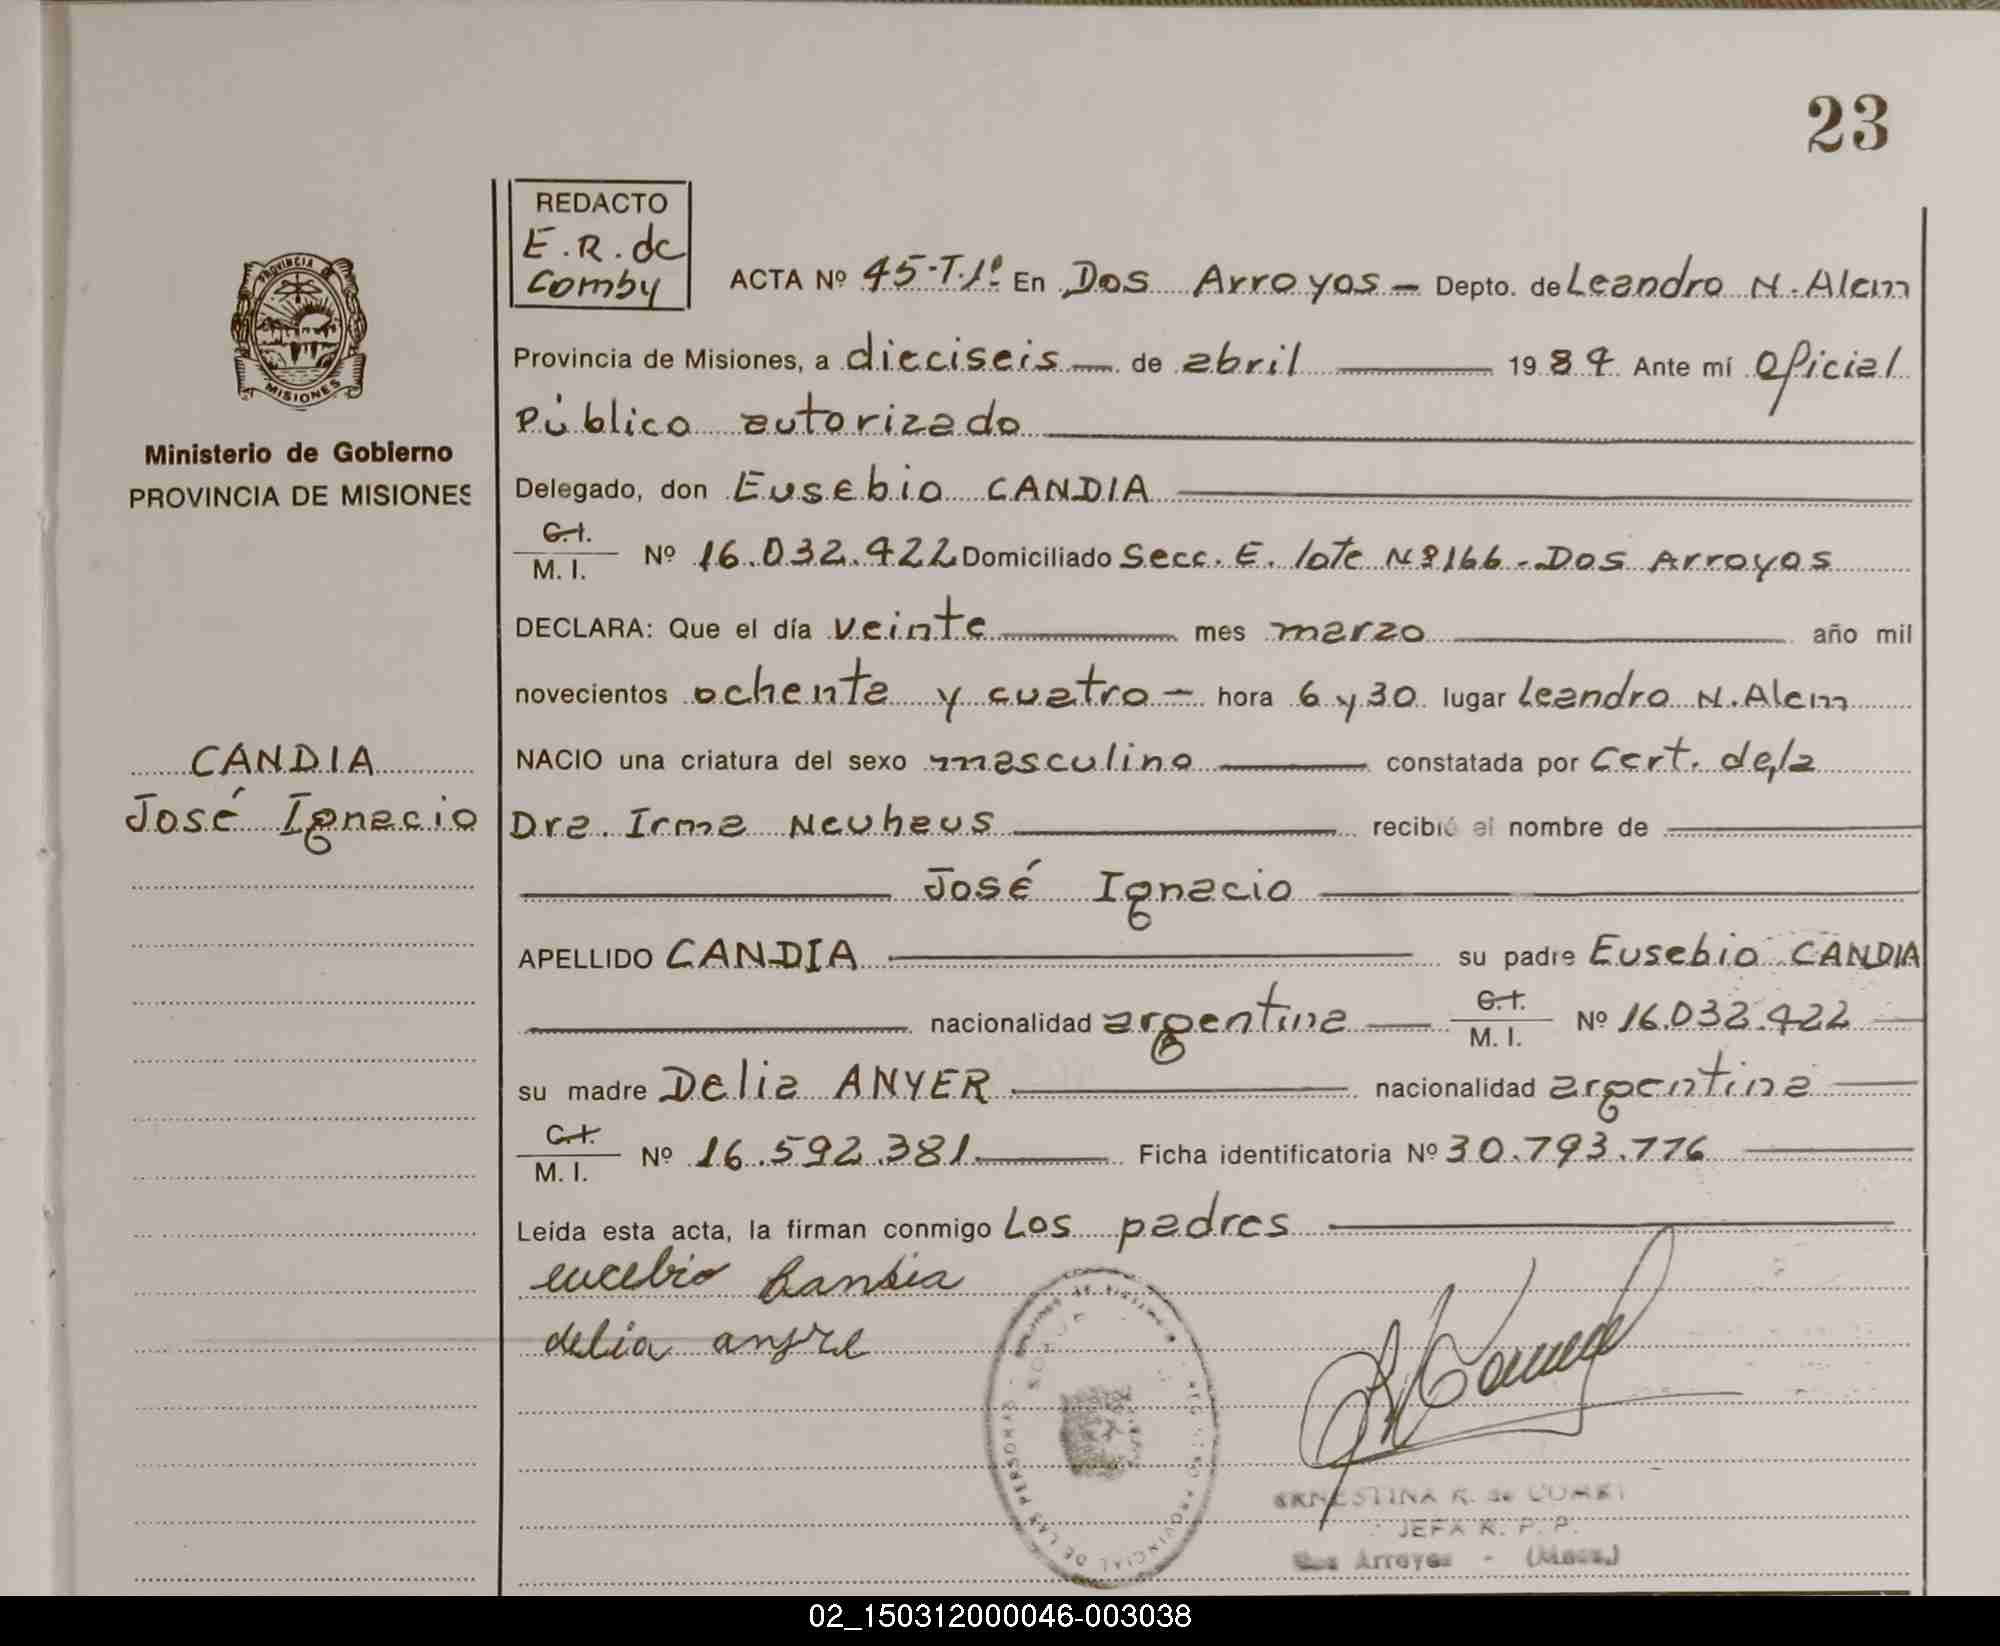 23
REDACTO
E.R. de
Comby
ACTA Nº 45-T.1º En Dos Arroyos - Depto. de Leandro N. Alem
PROVINCIA
MISIONES
Provincia de Misiones, a dieciseis de abril 1984 Ante mí Oficial
Público autorizado
Ministerio de Gobierno
PROVINCIA DE MISIONES
Delegado, don Eusebio CANDIA
C.I.
M. I. Nº 16.032.422 Domiciliado Secc. E. lote Nº 166 - Dos Arroyos
DECLARA: Que el día veinte mes marzo año mil
novecientos ochenta y cuatro - hora 6 y 30 lugar Leandro N. Alem
CANDIA
José Ignacio
NACIO una criatura del sexo masculino constatada por Cert. de la
Dra. Irma Neuhaus recibió el nombre de
José Ignacio
APELLIDO CANDIA su padre Eusebio CANDIA
nacionalidad argentina C.I.
M. I. Nº 16.032.422
su madre Delia ANYER nacionalidad argentina
C.I.
M. I. Nº 16.592.381 Ficha identificatoria Nº 30.793.776
Leída esta acta, la firman conmigo Los padres
eucebio Candia
delia
REGISTRO PROVINCIAL DE LAS PERSONAS
ERNESTINA R. de COMBY
JEFA R. P. P.
Dos Arroyos - (Mnes.)
02_150312000046-003038